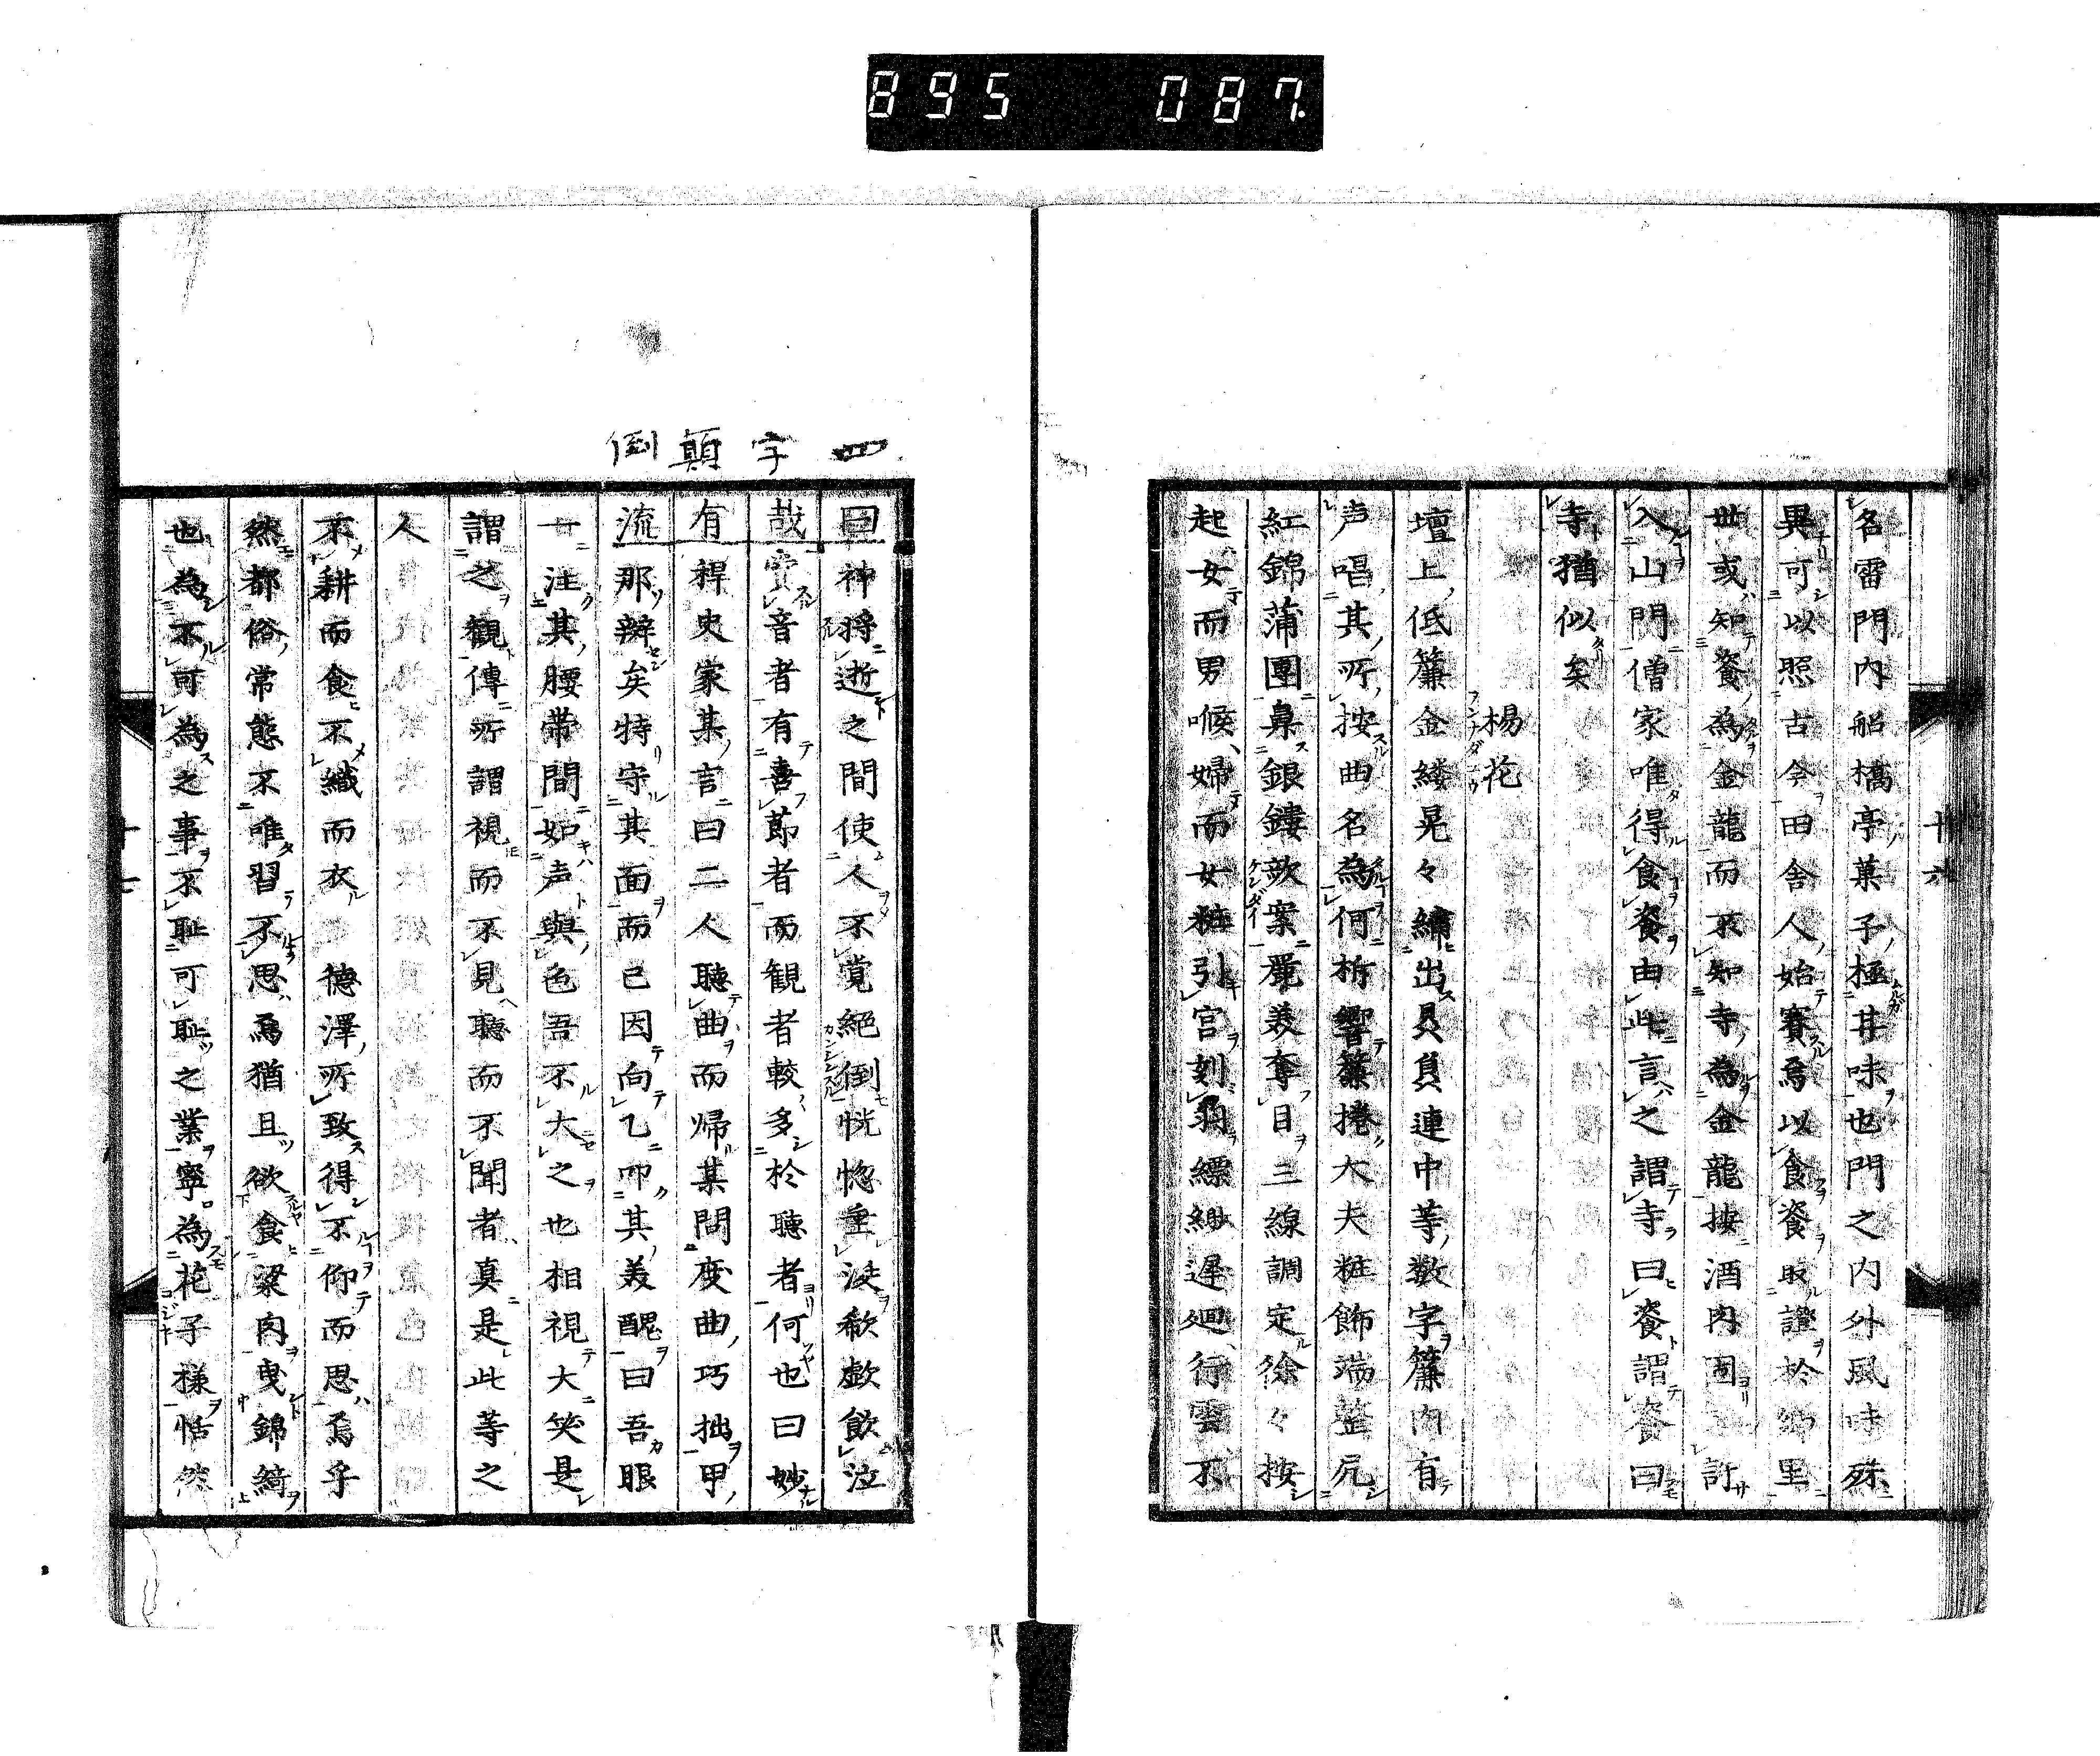 895 087
十六
名雷門内船橋亭菓子極其味也門之内外風味殊
異可以照古今田舎人始賽焉以食餈取證於郷里
世或知餈為金龍而不知寺為金龍按酒肉固訂
入山門僧家唯得食餈由此言之謂寺曰餈謂餈曰
寺猶似矣
楊花
壇上低簾金縷晃々繍出貝負連中等数字簾内有
声唱其所按曲名為何析響簾捲大夫粧飾端整尻
紅錦蒲團鼻銀鏤歆案麗美奪目三線調定徐々按
起女而男喉婦而女粧引宮刻羽縹緲遅廻行雲不
四字顛倒
曰神将逝之間使人不覚絶倒恍惚垂涙欷歔飲泣
哉賣音者有喜節者而観者較多於聴者何也曰妙
有稗史家某言曰二人聴曲而帰某問度曲巧拙甲
流那辨矣特守其面而已因向乙叩其美醜曰吾眼
一注其腰帯間如声與色吾不大之也相視大笑是
謂之観傳所謂視而不見聴而不聞者真是此等之
人
不耕而食不織而衣 徳澤所致得不仰而思焉乎
然都俗常態不唯習不思焉猶且欲食粱肉曳錦綺
也為不可為之事不耻可耻之業寧為花子様恬然